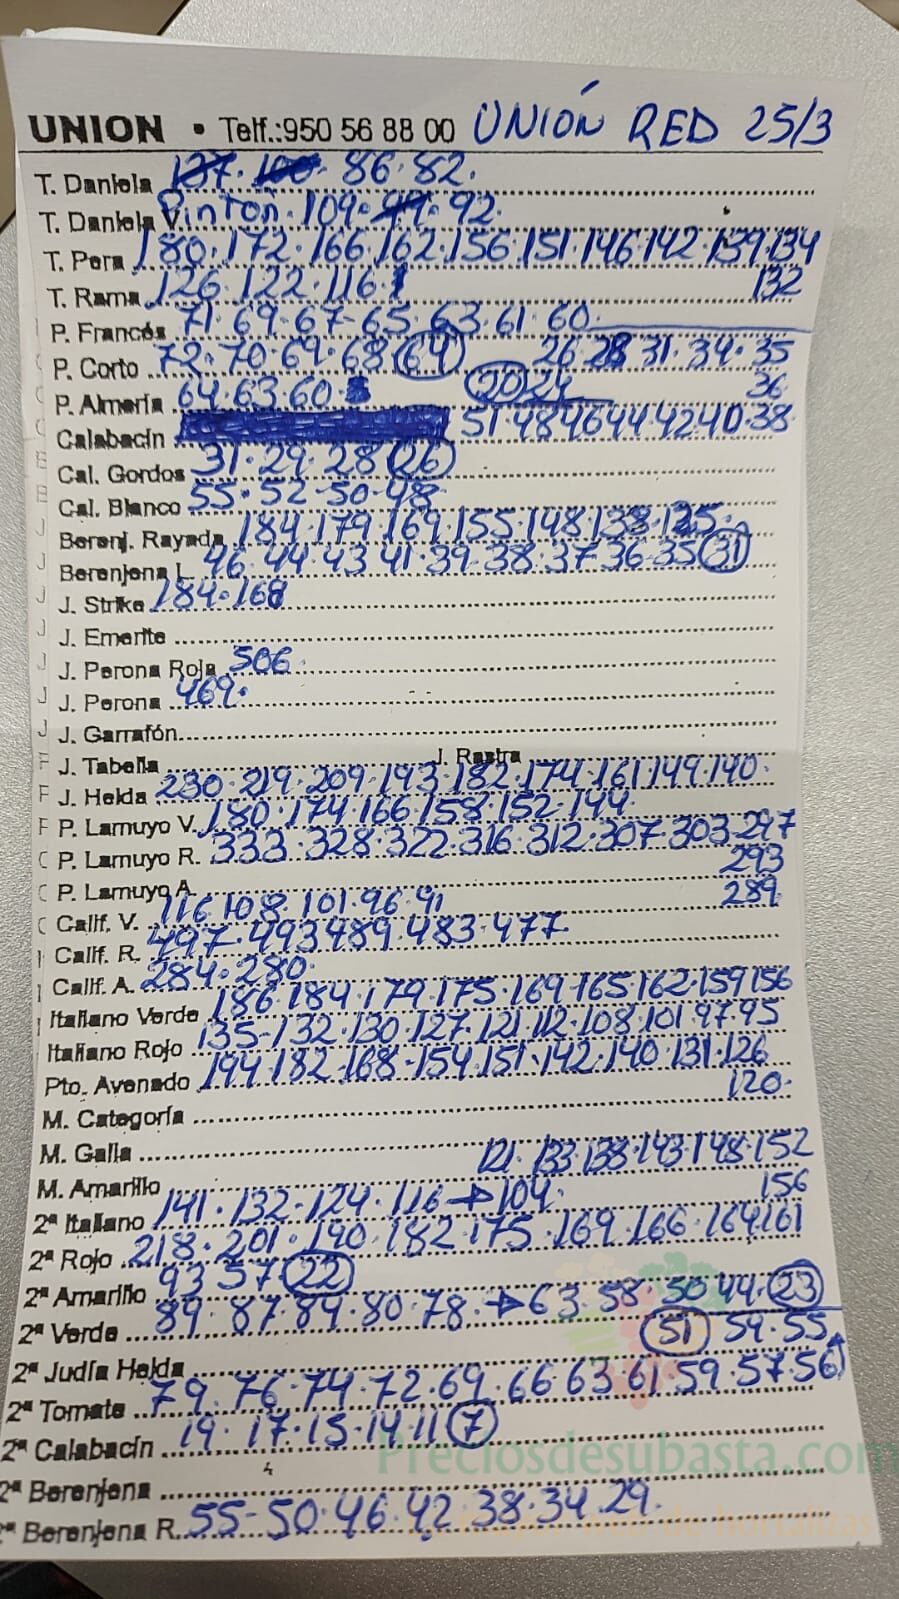 UNION • Telf.:950 56 88 00 UNIÓN RED 25/3
T. Daniela 137. 100. 86.82.
T. Daniela V. Pinton. 109. 99. 92.
T. Pera 180.172.166.162.156.151.146.142.139.134
T. Rama 126.122.116. 132
P. Francés 71.69.67-65.63.61.60
P. Corto 72.70.69.68 64 26 28 31.34.35
P. Almería 64.63.60 20 24 36
Calabacín 51.48 46 44 42.40.38
Cal. Gordos 31.29.28 26
Cal. Blanco 55.52-50-48
Berenj. Rayada 184.179.169.155.148.138.125.
Berenjena L. 46.44.43 41.39.38.37.36.35 31
J. Strike 184.168
J. Emerite
J. Perona Roja 506.
J. Perona 469.
J. Garrafón
J. Tabella J. Rastra
J. Helda 230.219.209.193.182.174.161.149.140.
P. Lamuyo V. 180.174.166.158.152.144.
P. Lamuyo R. 333.328.322.316.312.307.303.297
293
P. Lamuyo A. 289
Calif. V. 116.108.101.96.91
Calif. R. 497.493 489.483.477.
Calif. A. 284.280.
Italiano Verde 186.184.179.175.169.165.162.159 156
Italiano Rojo 135-132.130.127.121.112.108.101.97.95
Pto. Avenado 194.182.168-154.151.142.140.131.126
M. Categoría 120.
M. Galia
M. Amarillo 121. 133.138.143.148.152
2ª Italiano 141.132-124.116→104. 156
2ª Rojo 218.201.190.182.175.169.166.164.161
2ª Amarillo 93 57 22
2ª Verde 89.87.84.80.78.→63.58.50.44.23
2ª Judía Helda 51 54.55
2ª Tomate 79.76.74.72.69.66.63.61.59.57.56
2ª Calabacín 19.17.15.14.11 7
Preciosdesubasta.com
2ª Berenjena
2ª Berenjena R. 55-50.46.42.38.34.29.
de hortalizas